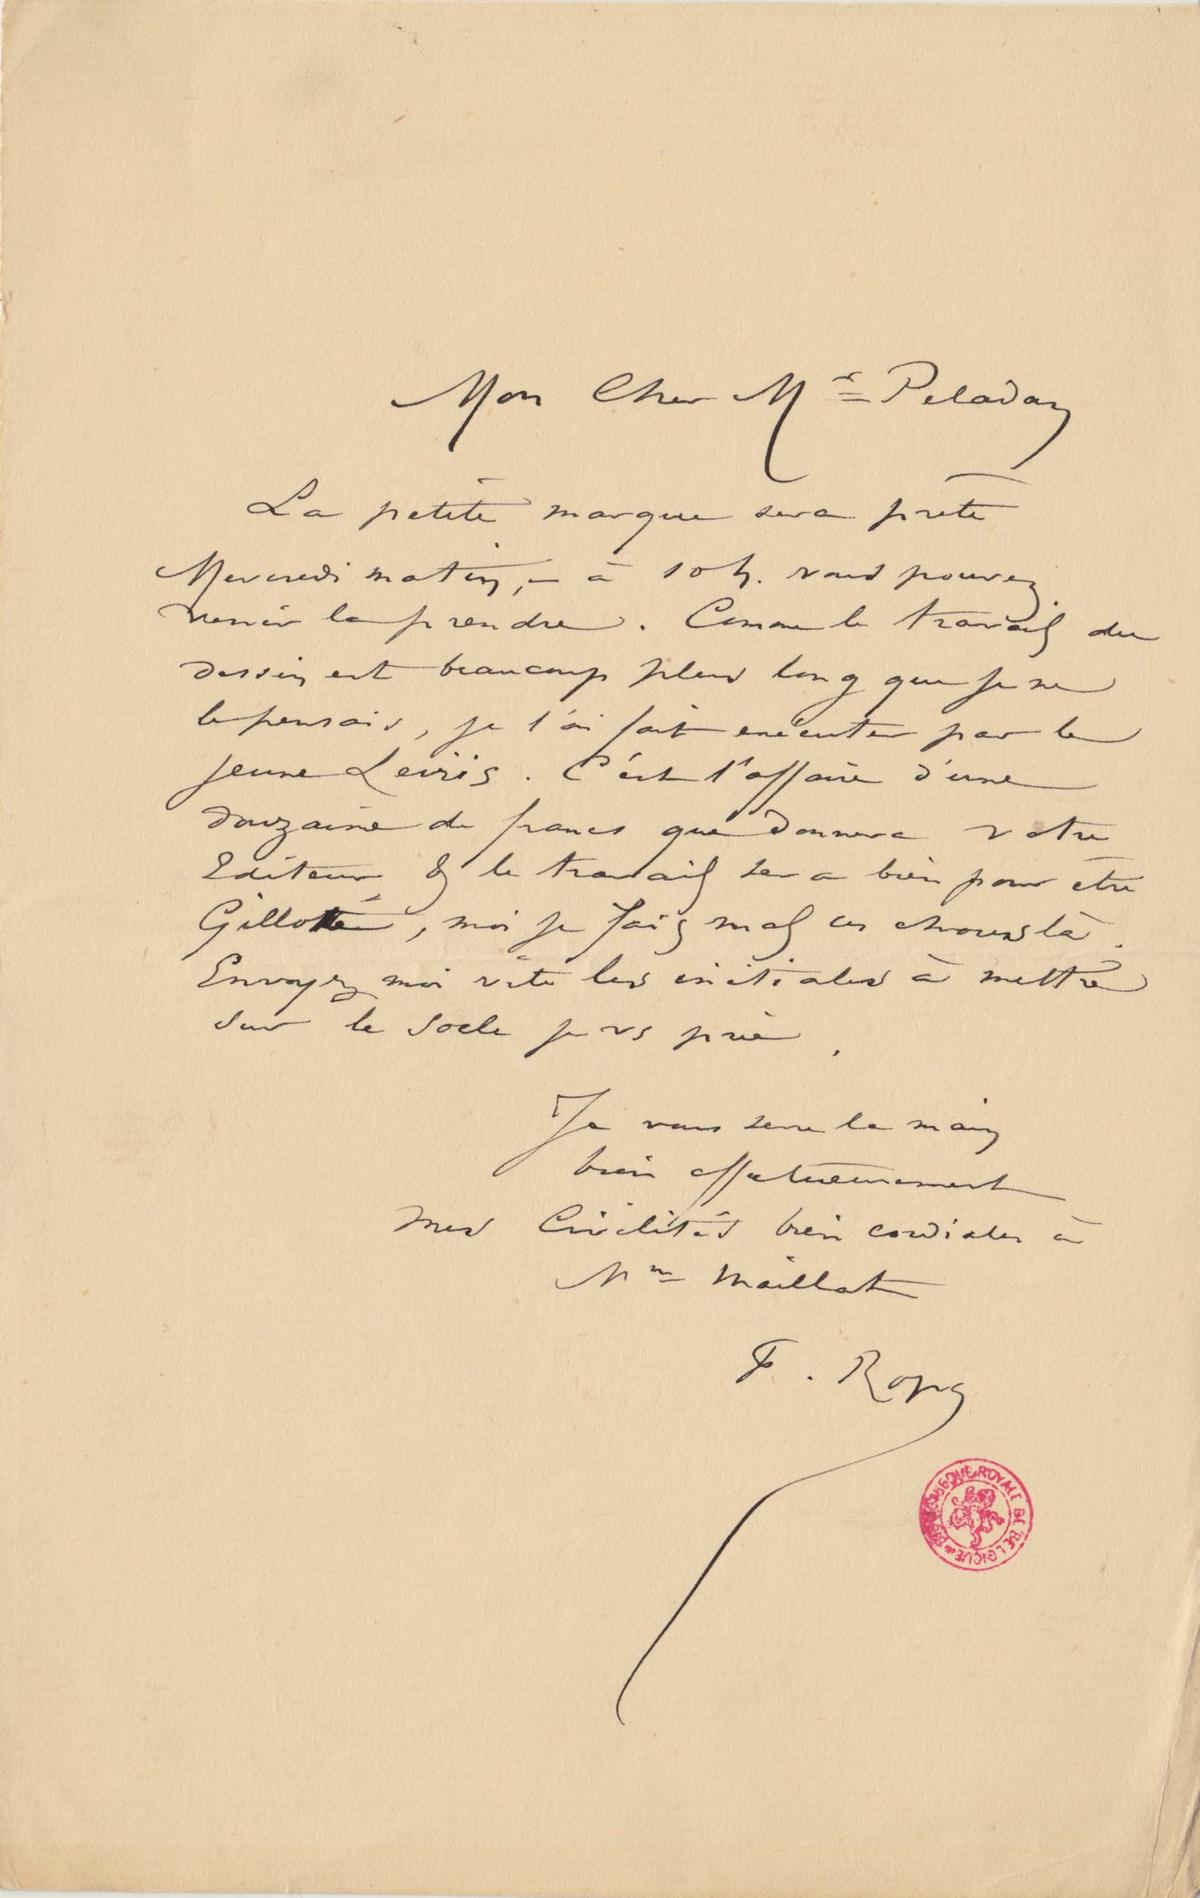 Mon Cher Mr Peladan
La petite marque sera prête
Mercredi matin, – à 10 h. vous pouvez
venir la prendre. Comme le travail du
dessin est beaucoup plus long que je ne
le pensais, je l'ai fait exécuter par le
jeune Leiris. C'est l'affaire d'une
douzaine de francs que donnera votre
Editeur, & le travail sera bien pour être
Gillotté, moi je fais mal ces choses là.
Envoyez moi vite les initiales à mettre
sur le socle je vs prie.
Je vous serre la main
bien affectueusement
mes Civilités bien cordiales à
Mme Maillat
F. Rops
BIBLIOTHEQUE ROYALE DE BELGIQUE